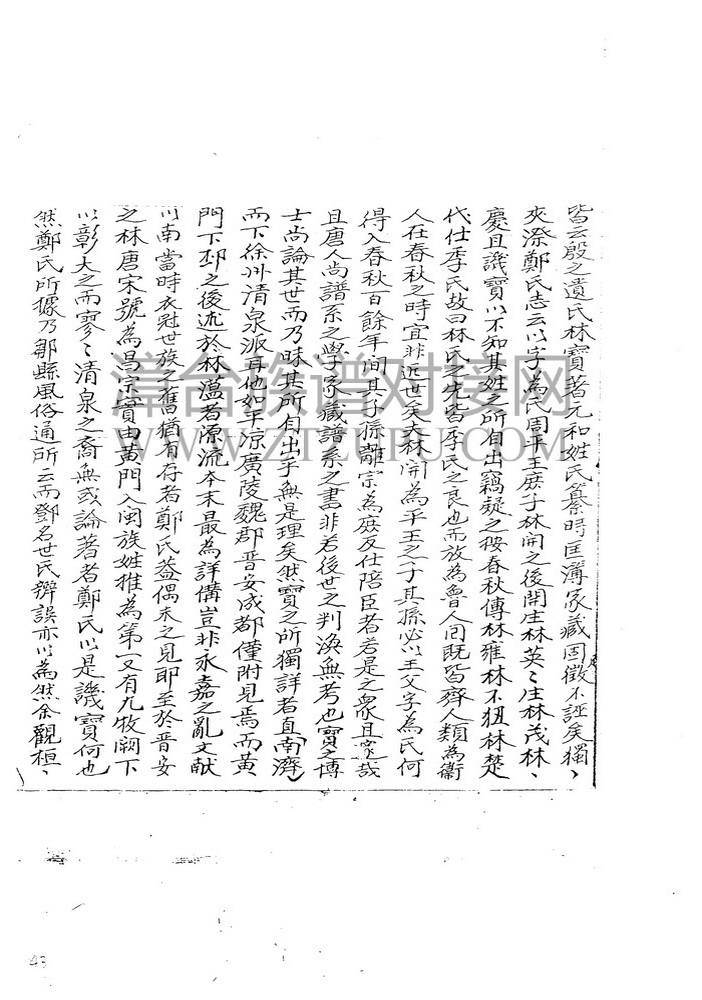 皆云殷之遺氏林寶著元和姓氏纂時匡簿家藏固徵不誣矣獨、
夾漈鄭氏志云以字為氏周平王庶子林開之後開庄林英〻庄林茂林、
慶且譏寶以不知其姓之所有出竊疑之按春秋傳林雍林不狃林楚
代仕季氏故曰林氏之先皆季氏之良也而放為魯人回既皆齊人類為衞
人在春秋之時宜非近世矣夫林開為平王之子其孫必以王父字為氏何
得入春秋百餘年間其子孫離宗為庶反仕陪臣者若是之衆且寔哉
且唐人尚譜系之學家藏譜系之書非若後世之判渙無考也寶之博
士尚論其世而乃昧其所有出乎無是理矣然寶之所獨詳者直南濟
而下徐州清泉派再他如平凉廣陵魏郡晋安成都僅附見焉而黃
門下邳之後述於林溫者源流本末最為詳備豈非永嘉之亂文献
以南當時衣冠世族之舊猶有存者鄭氏盖偶未之見耶至於晋安
之林唐宋號為昌宗實由黃門入閩族姓推為第一又有九牧闕下
以彰大之而寥〻清泉之裔無或論著者鄭氏以是譏寶何也
然鄭氏所據乃鄒縣風俗通所云而鄧名世氏辨誤亦以為然余觀桓、
尋合族谱对接网
WWW.ZTLUPU.COM
43